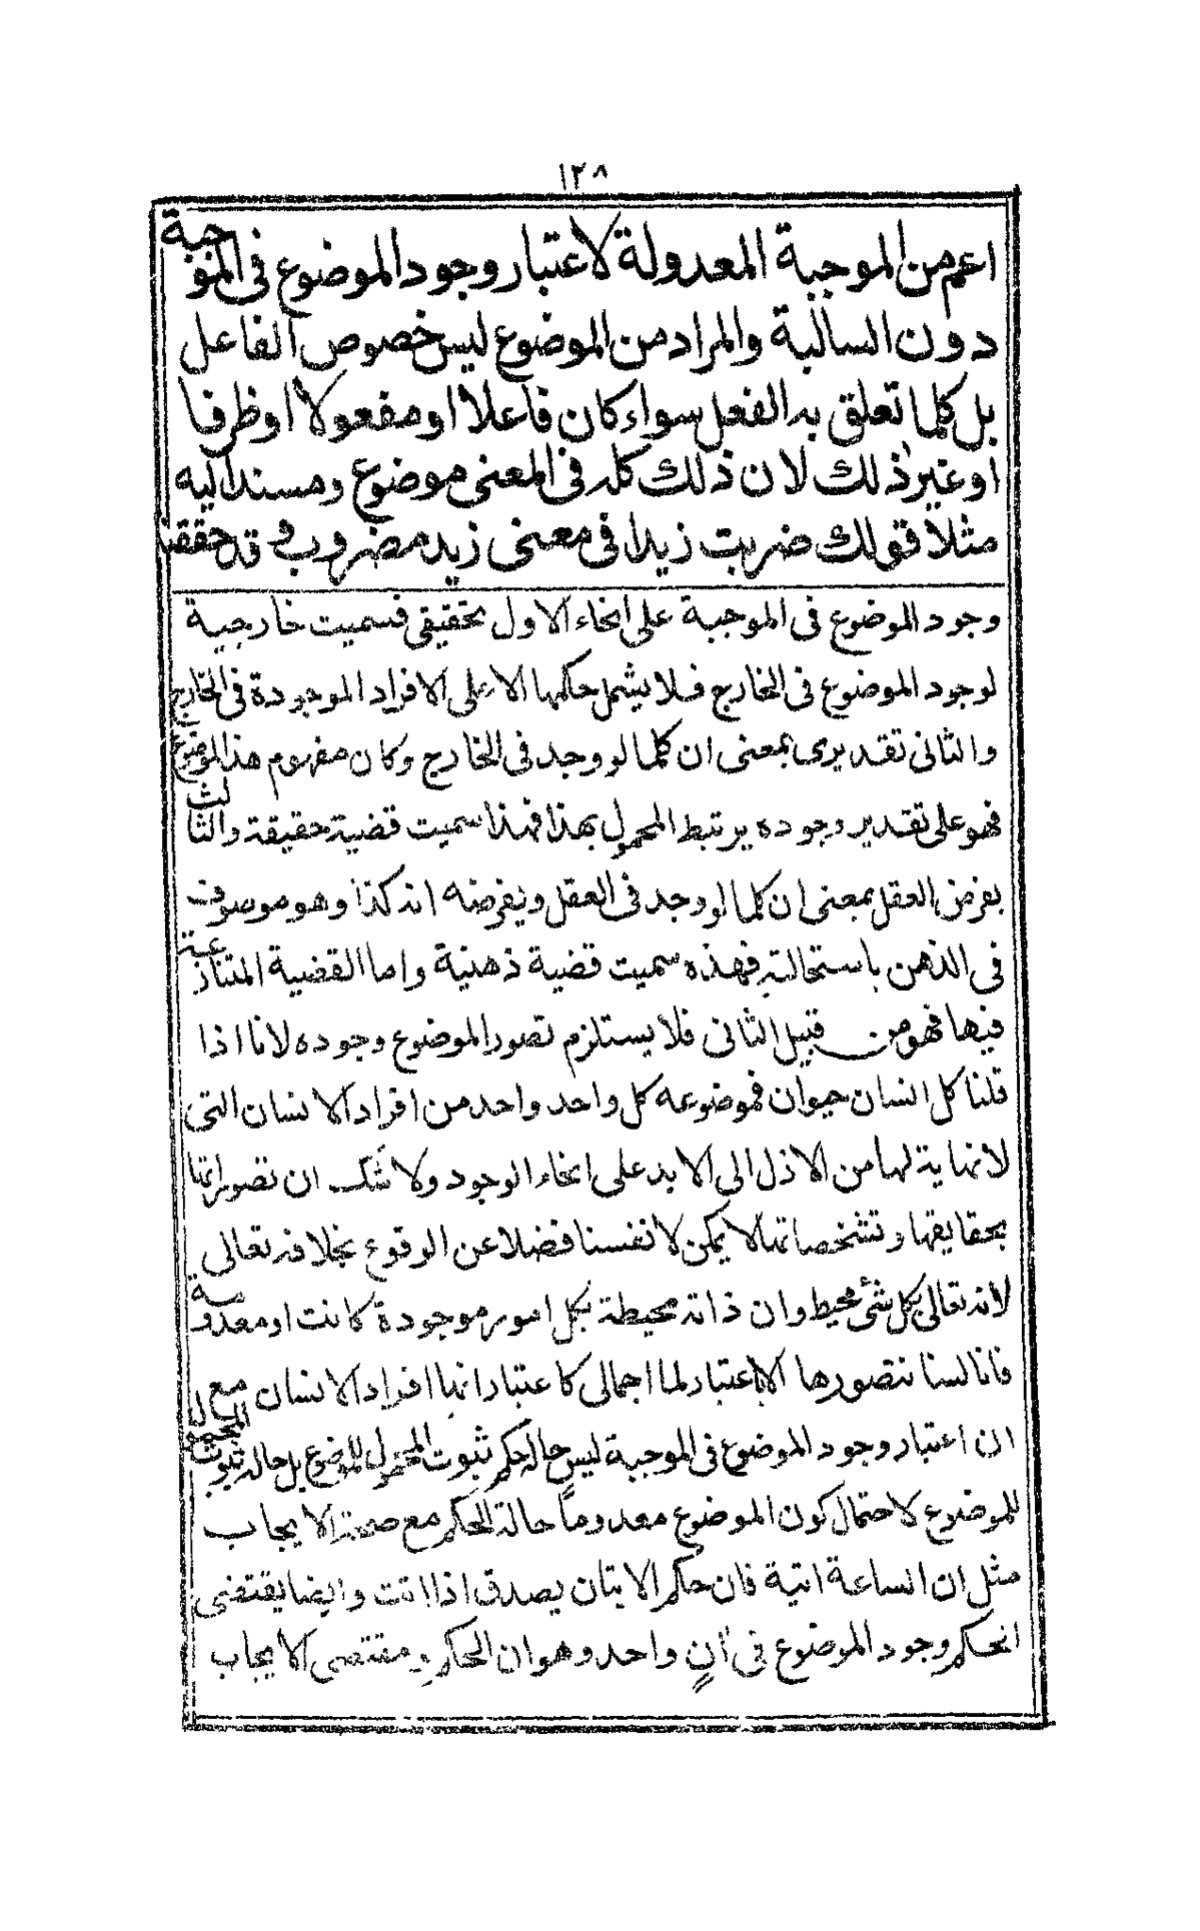 ١٢٨
اعم من الموجبة المعدولة لاعتبار وجود الموضوع فى الموجبة
دون السالبة والمراد من الموضوع ليس خصوص الفاعل
بل كلما تعلق به الفعل سواء كان فاعلا او مفعولا او ظرفا
او غير ذلك لان ذلك كله فى المعنى موضوع ومسند اليه
مثلا قولك ضربت زيدا فى معنى زيد مضروب وقد حققنا
وجود الموضوع فى الموجبة على انحاء الاول تحقيقى فسميت خارجية
لوجود الموضوع فى الخارج فلا يشمل حكمها الا على الافراد الموجودة فى الخارج
والثانى تقديرى بمعنى ان كلما لو وجد فى الخارج وكان مفهوم هذا الموضوع
فهو على تقدير وجوده يرتبط المحمول بهذا فهذا سميت قضية حقيقة والثالث
بفرض العقل بمعنى ان كلما لو وجد فى العقل ويفرضه انه كذا وهو موسوف
فى الذهن باستحالته فهذه سميت قضية ذهنية واما القضية المتنازعة
فيها فهو من قبيل الثانى فلا يستلزم تصور الموضوع وجوده لانا اذا
قلنا كل انسان حيوان فموضوعه كل واحد واحد من افراد الانسان التى
لانهاية لها من الاذل الى الابد على انحاء الوجود ولا شك ان تصوراتها
بحقايقها وتشخصاتها لا يمكن لانفسنا فضلا عن الوقوع بخلافه تعالى
لانه تعالى بكل شئ محيط وان ذاته محيطة بكل امور موجودة كانت او معدومة
فانا لسنا نتصورها الا باعتبار لما اجمالى كاعتبار انها افراد الانسان مع
ان اعتبار وجود الموضوع فى الموجبة ليس حالة حكم ثبوت المحمول للموضوع بل حالة ثبوت المحمول
للموضوع لاحتمال كون الموضوع معدوما حالة الحكم مع صحة الايجاب
مثل ان الساعة اتية فان حكم الاتيان يصدق اذا اتت وايضا يقتضى
الحكم وجود الموضوع فى ان واحد وهو ان الحكم ومقتضى الايجاب